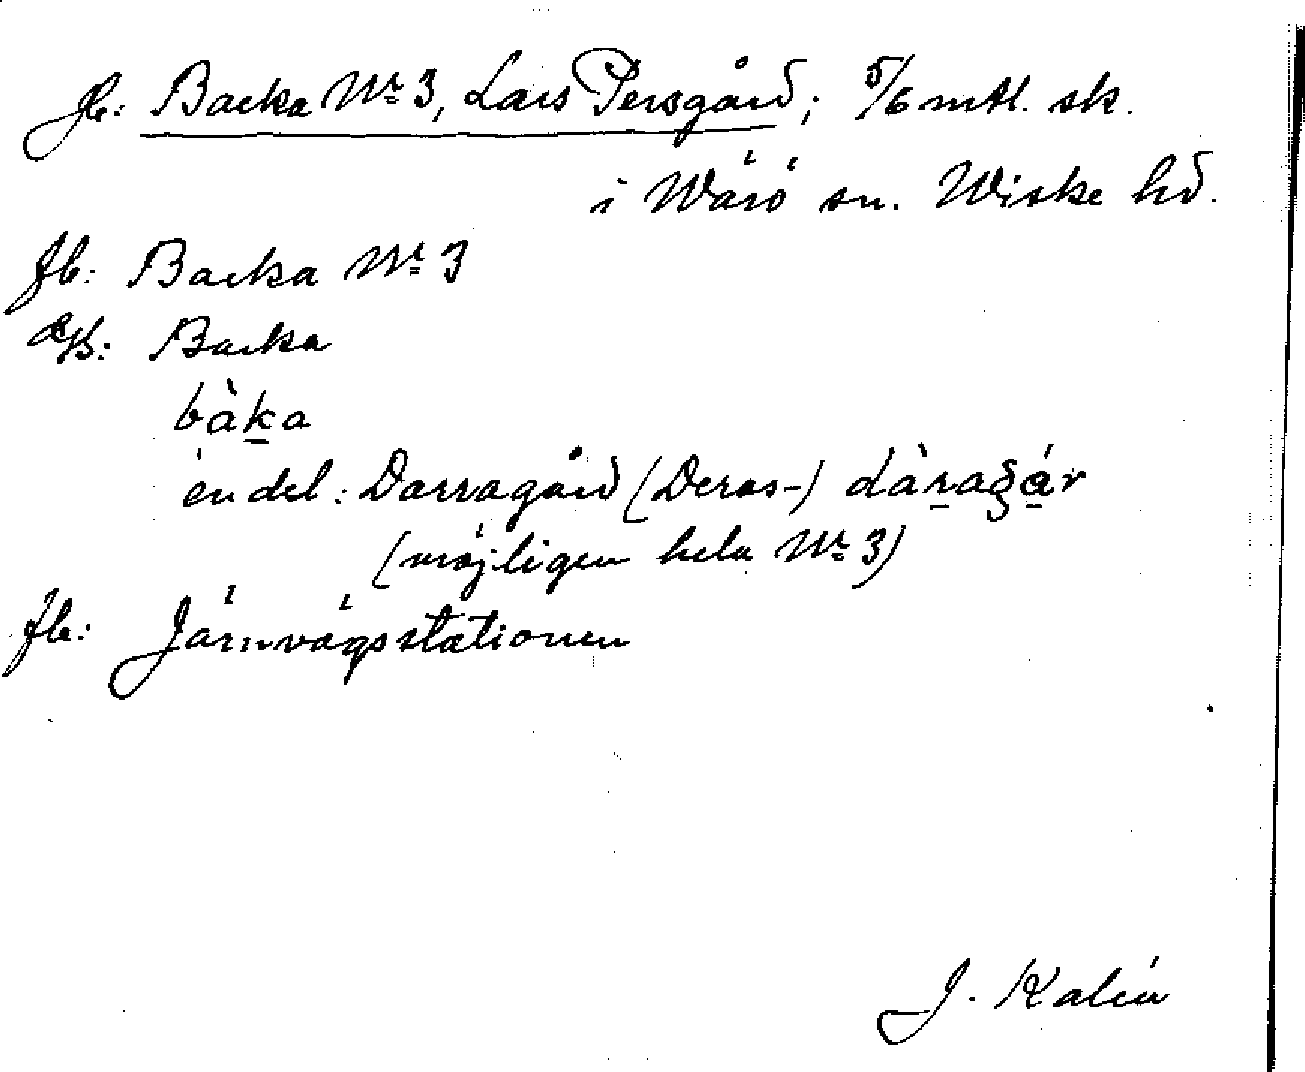 Jb: Backa Nr 3, Lars Persgård; 5/6 mtl. sk.
i Wärö sn. Wiske hd.
fb: Backa Nr 3
Backa
bàka
en del: Darragård (Deras-) dàraʒár
(möjligen hela Nr 3)
fb: Järnvägsstationen
J. Kalén